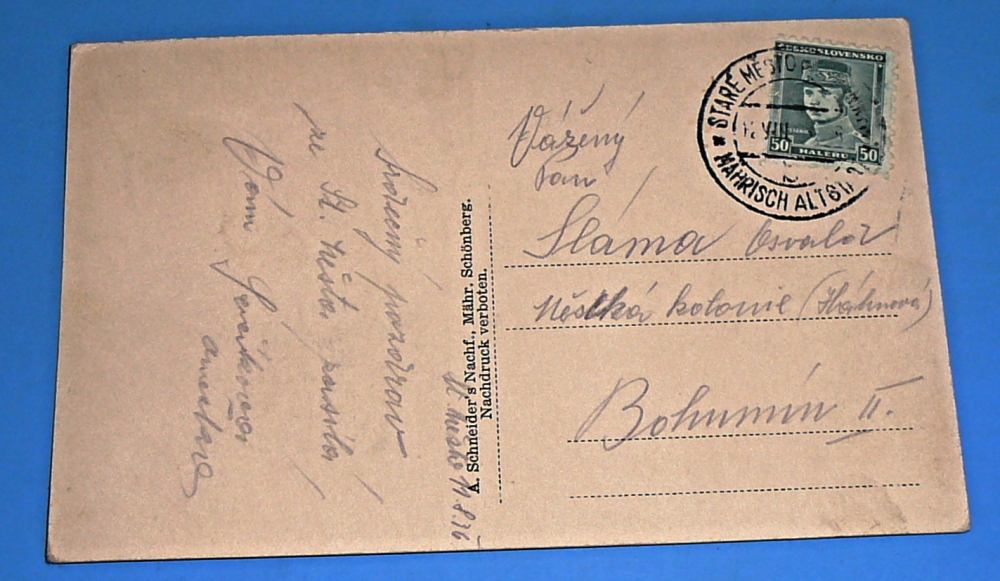 Srdečný pozdrav
ze St. Města zasílá
Vám
St. Město 11.8.36
A. Schneider's Nachf., Mähr. Schönberg.
Nachdruck verboten.
ČESKOSLOVENSKO
50 HALÉŘŮ 50
STARÉ MĚSTO P
12.VIII
MÄHRISCH ALTST
Vážený
Pan
Sláma Osvald
Městká kolonie (Hláhnová)
Bohumín II.